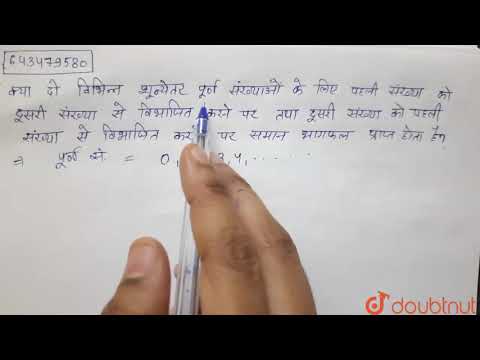 643479580
क्या दो विभिन्न शून्येतर पूर्ण संख्याओं के लिए पहली संख्या को
दूसरी संख्या से विभाजित करने पर तथा दूसरी संख्या को पहली
संख्या से विभाजित करने पर समान भागफल प्राप्त होता है?
⇒ पूर्ण सं. = 0, 3, 4, ......
doubtnut